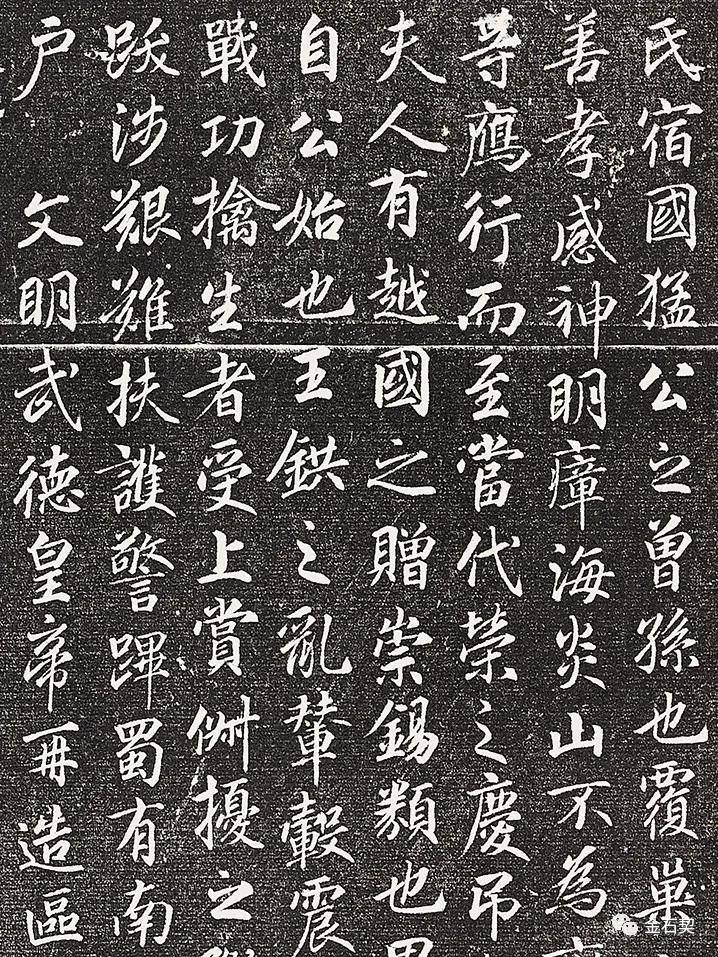 氏宿國猛公之曾孫也覆巢
善孝感神明瘴海炎山不為
等鴈行而至當代榮之慶弔
夫人有越國之贈崇錫類也
自公始也王鉷之亂輦轂震
戰功擒生者受上賞俶擾之
跋涉艱難扶護警蹕蜀有南
户 文明武德皇帝再造區
金石契